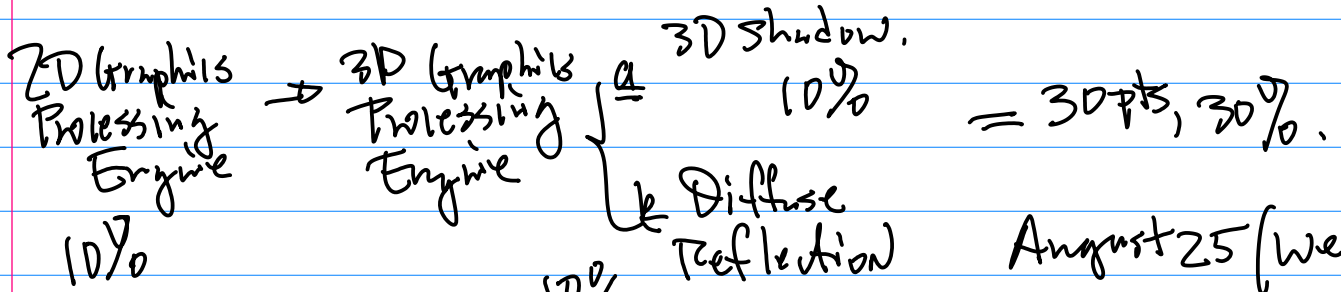 2D Graphics Processing Engine 10%
→ 3D Graphics Processing Engine
a 3D Shadow. 10%
b Diffuse Reflection
10%
= 30pts, 30%.
August 25 (We